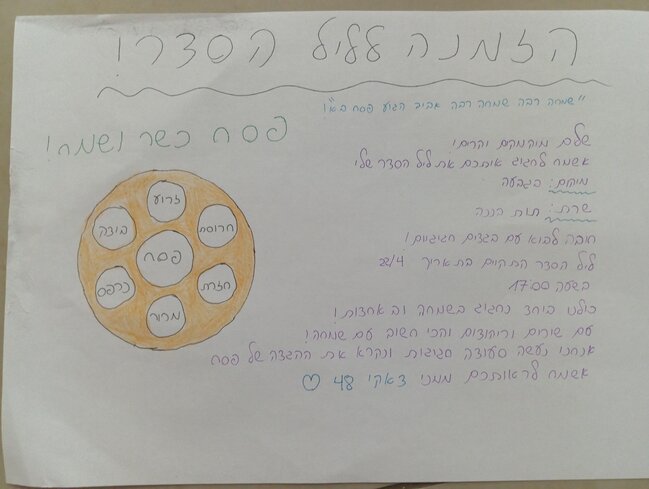 הזמנה לליל הסדר!
"שמחה רבה שמחה רבה אביב הגיע פסח בא"!
פסח כשר ושמח!
שלום
אשמח לחגוג איתכם את ליל הסדר שלי
מיקום: בגבעה
שרת: תות בננה
חובה לבוא עם בגדים חגיגיים!
ליל הסדר התקיים בתאריך 22/4
בשעה 17:00
כולנו ביחד נחגוג בשמחה וב אחדות!
עם שירים וריקודים והכי חשוב עם שמחה!
אנחנו נעשה סעודה סגיגות ונקרא את ההגדה של פסח
אשמח לראותכם ממני צאקי 48 ♡
זרוע
חרוסת
חזרת
מרור
כרפס
ביצה
פסח